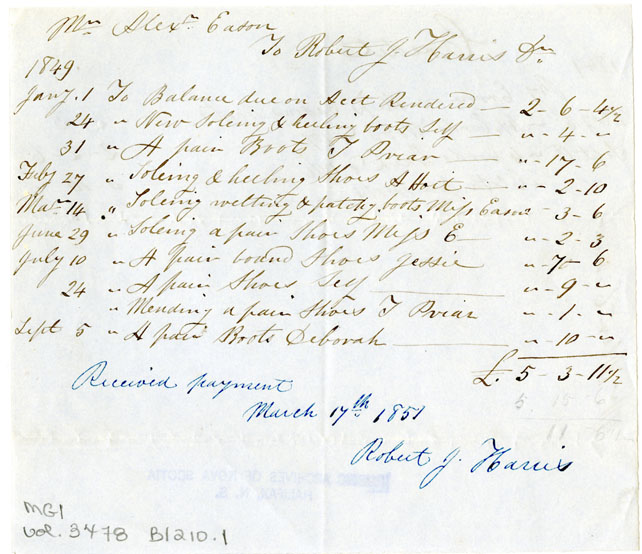 Mr Alexr Eason
To Robert J. Harris Dr
1849
Jany. 1 To Balance due on Acct Rendered — 2 - 6 - 4½
24 " New Soleing & heeling boots Self — " - 4 - "
31 " A pair Boots T Priar — " - 17 - 6
Feby 27 " Soleing & heeling Shoes A Hoit — " - 2 - 10
Mar 14 " Soleing welting & patchg boots Miss Eason " - 3 - 6
June 29 " Soleing a pair Shoes Miss E — " - 2 - 3
July 10 " A pair bound Shoes Jessie " - 7 - 6
24 " A pair Shoes Self — " - 9 - "
" Mending a pair Shoes T Priar " - 1 - "
Sept 5 " A pair Boots Deborah — " - 10 - "
£. 5 - 3 - 11½
5 15 6
11 6
Received payment
March 17th 1851
Robert J. Harris
ARCHIVES OF NOVA SCOTIA
HALIFAX, N. S.
MG1
vol. 3478 B1210.1